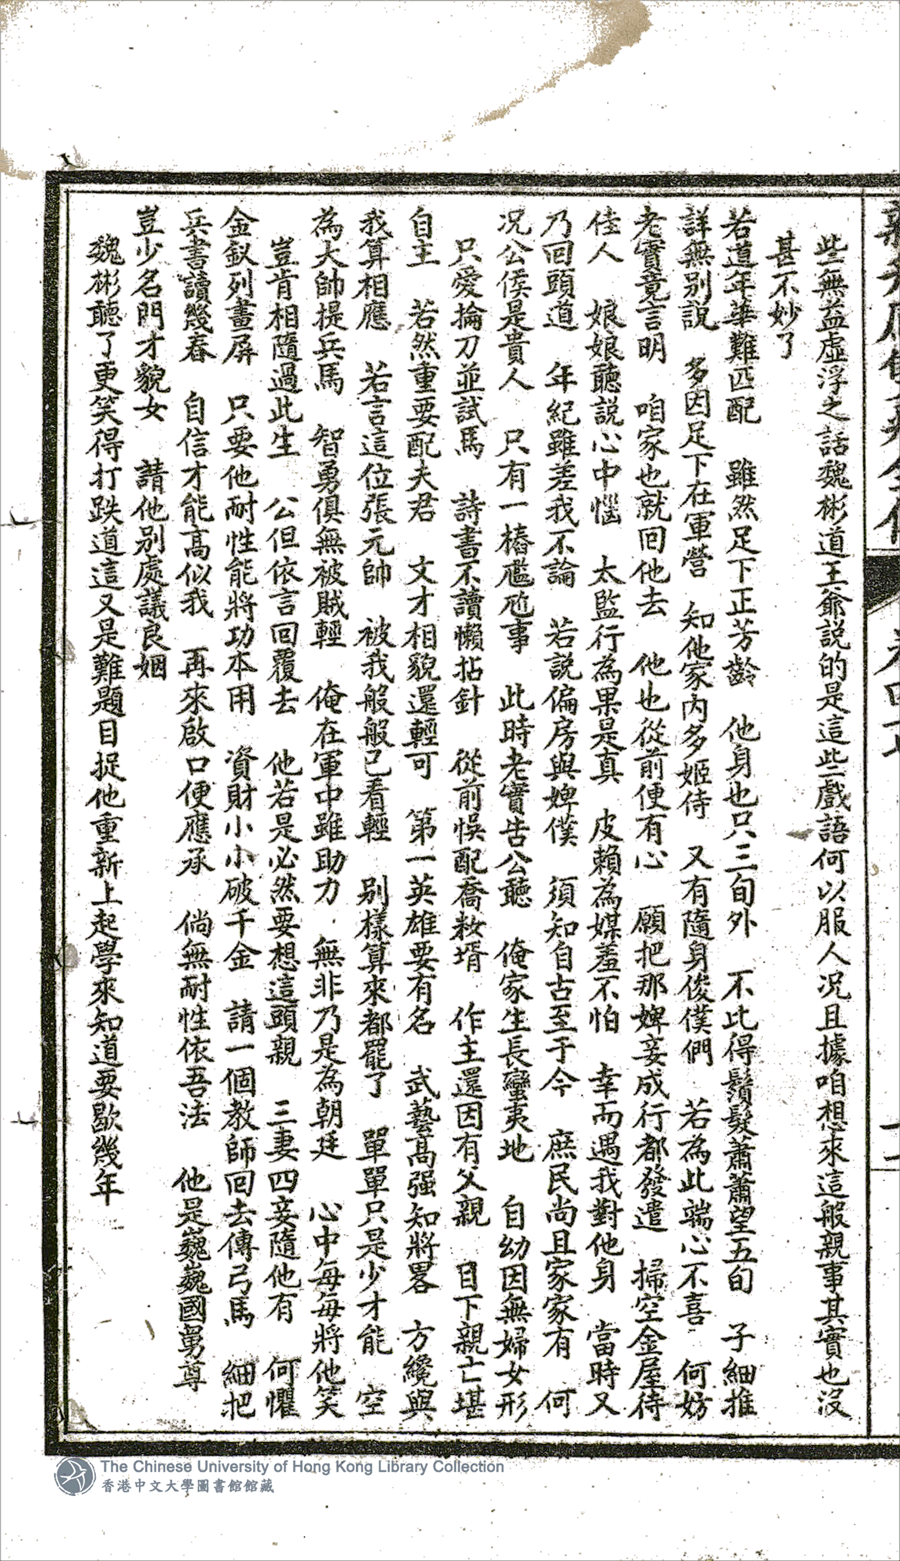 些無益虛浮之話魏彬道王爺說的是這些戲語何以服人况且據咱想來這般親事其實也沒
甚不妙了
若道年華難匹配 雖然足下正芳齡 他身也只三旬外 不比得鬚髮蕭蕭望五旬 子細推
詳無别說 多因足下在軍營 知他家內多姬侍 又有隨身俊僕們 若為此端心不喜 何妨
老實竟言明 咱家也就囘他去 他也從前便有心 願把那婢妾成行都發遣 掃空金屋待
佳人 娘娘聽說心中惱 太監行為果是真 皮賴為媒羞不怕 幸而遇我對他身 當時又
乃囘頭道 年紀雖差我不論 若說偏房與婢僕 須知自古至于今 庶民尚且家家有 何
况公侯是貴人 只有一樁尷尬事 此時老實告公聽 俺家生長蠻夷地 自幼因無婦女形
只愛掄刀並試馬 詩書不讀懶拈針 從前悞配喬粧壻 作主還因有父親 目下親亡堪
自主 若然重要配夫君 文才相貌還輕可 第一英雄要有名 武藝高强知將畧 方纔與
我算相應 若言這位張元帥 被我般般已看輕 别樣算來都罷了 單單只是少才能 空
為大帥提兵馬 智勇俱無被賊輕 俺在軍中雖助力 無非乃是為朝廷 心中每每將他笑
豈肯相隨過此生 公但依言回覆去 他若是必然要想這頭親 三妻四妾隨他有 何懼
金釵列畫屏 只要他耐性能將功本用 資財小小破千金 請一個教師回去傳弓馬 細把
兵書讀幾春 自信才能高似我 再來啟口便應承 倘無耐性依吾法 他是巍巍國舅尊
豈少名門才貌女 請他别處議良姻
魏彬聽了更笑得打跌道這又是難題目捉他重新上起學來知道要歇幾年
The Chinese University of Hong Kong Library Collection
香港中文大學圖書館館藏